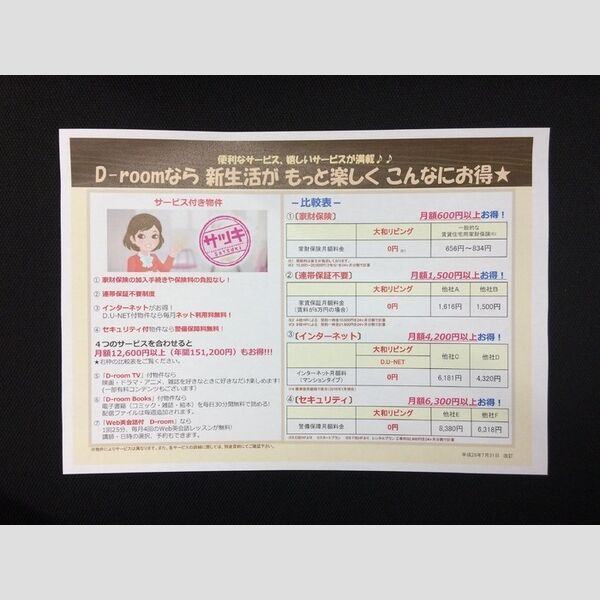 便利なサービス、嬉しいサービスが満載♪♪
D-roomなら 新生活が もっと楽しく こんなにお得★
サービス付き物件
サツキ
① 家財保険の加入手続きや保険料の負担なし！
② 連帯保証不要制度
③ インターネットがお得！
D.U-NET付物件なら毎月ネット利用料無料！
④ セキュリティ付物件なら警備保障料無料！
４つのサービスを合わせると
月額12,600円以上（年間151,200円）もお得!!!
★右枠の比較表をご覧ください。
⑤「D-room TV」付物件なら
映画・ドラマ・アニメ、雑誌を好きなときに好きなだけ楽しめます！
（一部有料コンテンツもございます）
⑥「D-room Books」付物件なら
電子書籍（コミック・雑誌・絵本）を毎日30分間無料で読める！
配信ファイルは毎週追加されます。
⑦「Web英会話付 D-room」なら
1回25分、毎月4回のWeb英会話レッスンが無料！
講師・日時の選択、予約もできます。
－比較表－
①〔家財保険〕 月額600円以上お得！
大和リビング 一般的な賃貸住宅用家財保険
家財保険月額料金 0円 656円～834円
②〔連帯保証不要〕 月額1,500円以上お得！
大和リビング 他社A 他社B
家賃保証月額料金（賃料が6万円の場合） 0円 1,616円 1,500円
③〔インターネット〕 月額4,200円以上お得！
大和リビング D.U-NET 他社C 他社D
インターネット月額料（マンションタイプ） 0円 6,181円 4,320円
④〔セキュリティ〕 月額6,300円以上お得！
大和リビング 他社E 他社F
警備保障月額料金 0円 8,380円 6,318円
平成28年7月31日 改訂